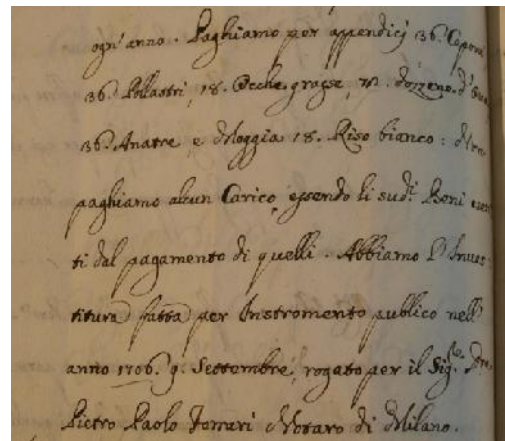 ogn' anno. Paghiamo per appendicj 36. Caponi
36. Pollastri, 18. Oche grasse, dozzene d'
36. Anatre e Moggia 18. Riso bianco:
paghiamo alcun Carico, essendo li sud.ti Beni esen
ti dal pagamento di quelli. Abbiamo l'Inves
titura fatta per Instromento publico nell'
anno 1706. 9. Settembre, rogato per il Sig.re
Pietro Paolo Notaro di Milano.